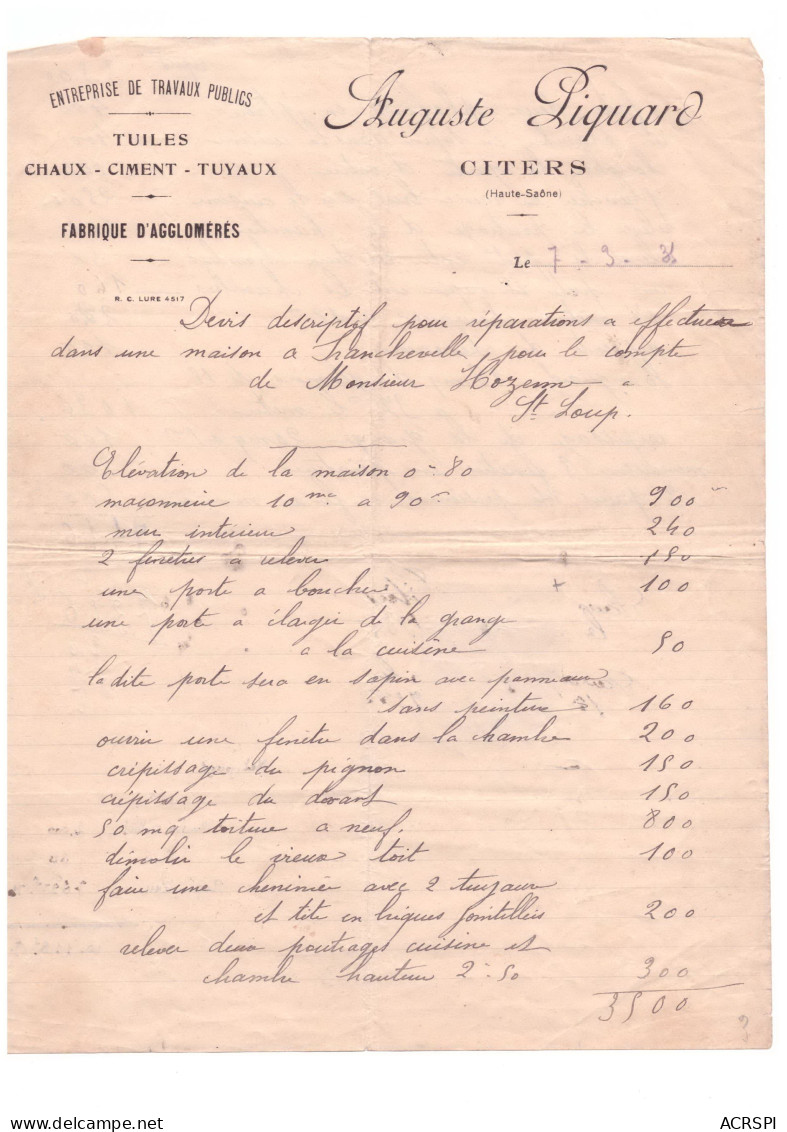 ENTREPRISE DE TRAVAUX PUBLICS
TUILES
CHAUX - CIMENT - TUYAUX
FABRIQUE D'AGGLOMÉRÉS
R. C. LURE 4517
Auguste Piquard
CITERS
(Haute-Saône)
Le 7 - 9 -
Devis descriptif pour réparations a effectuer
dans une maison a Francheville pour le compte
de Monsieur Hozenne a
St Loup.
Elévation de la maison 0m80
maçonnerie 10 mc a 90 900
mur intérieur 240
2 fenêtres a relever 150
une porte a boucher + 100
une porte a élargir de la grange
a la cuisine 50
la dite porte sera en sapin avec panneaux
sans peinture 160
ouvrir une fenêtre dans la chambre 200
crépissage du pignon 150
crépissage du devant 150
50 mq toiture a neuf. 800
démolir le vieux toit 100
faire une cheminée avec 2 tuyaux
et tête en briques 200
relever deux poutrages cuisine et
chambre hauteur 2m50 300
3500
ACRSPI